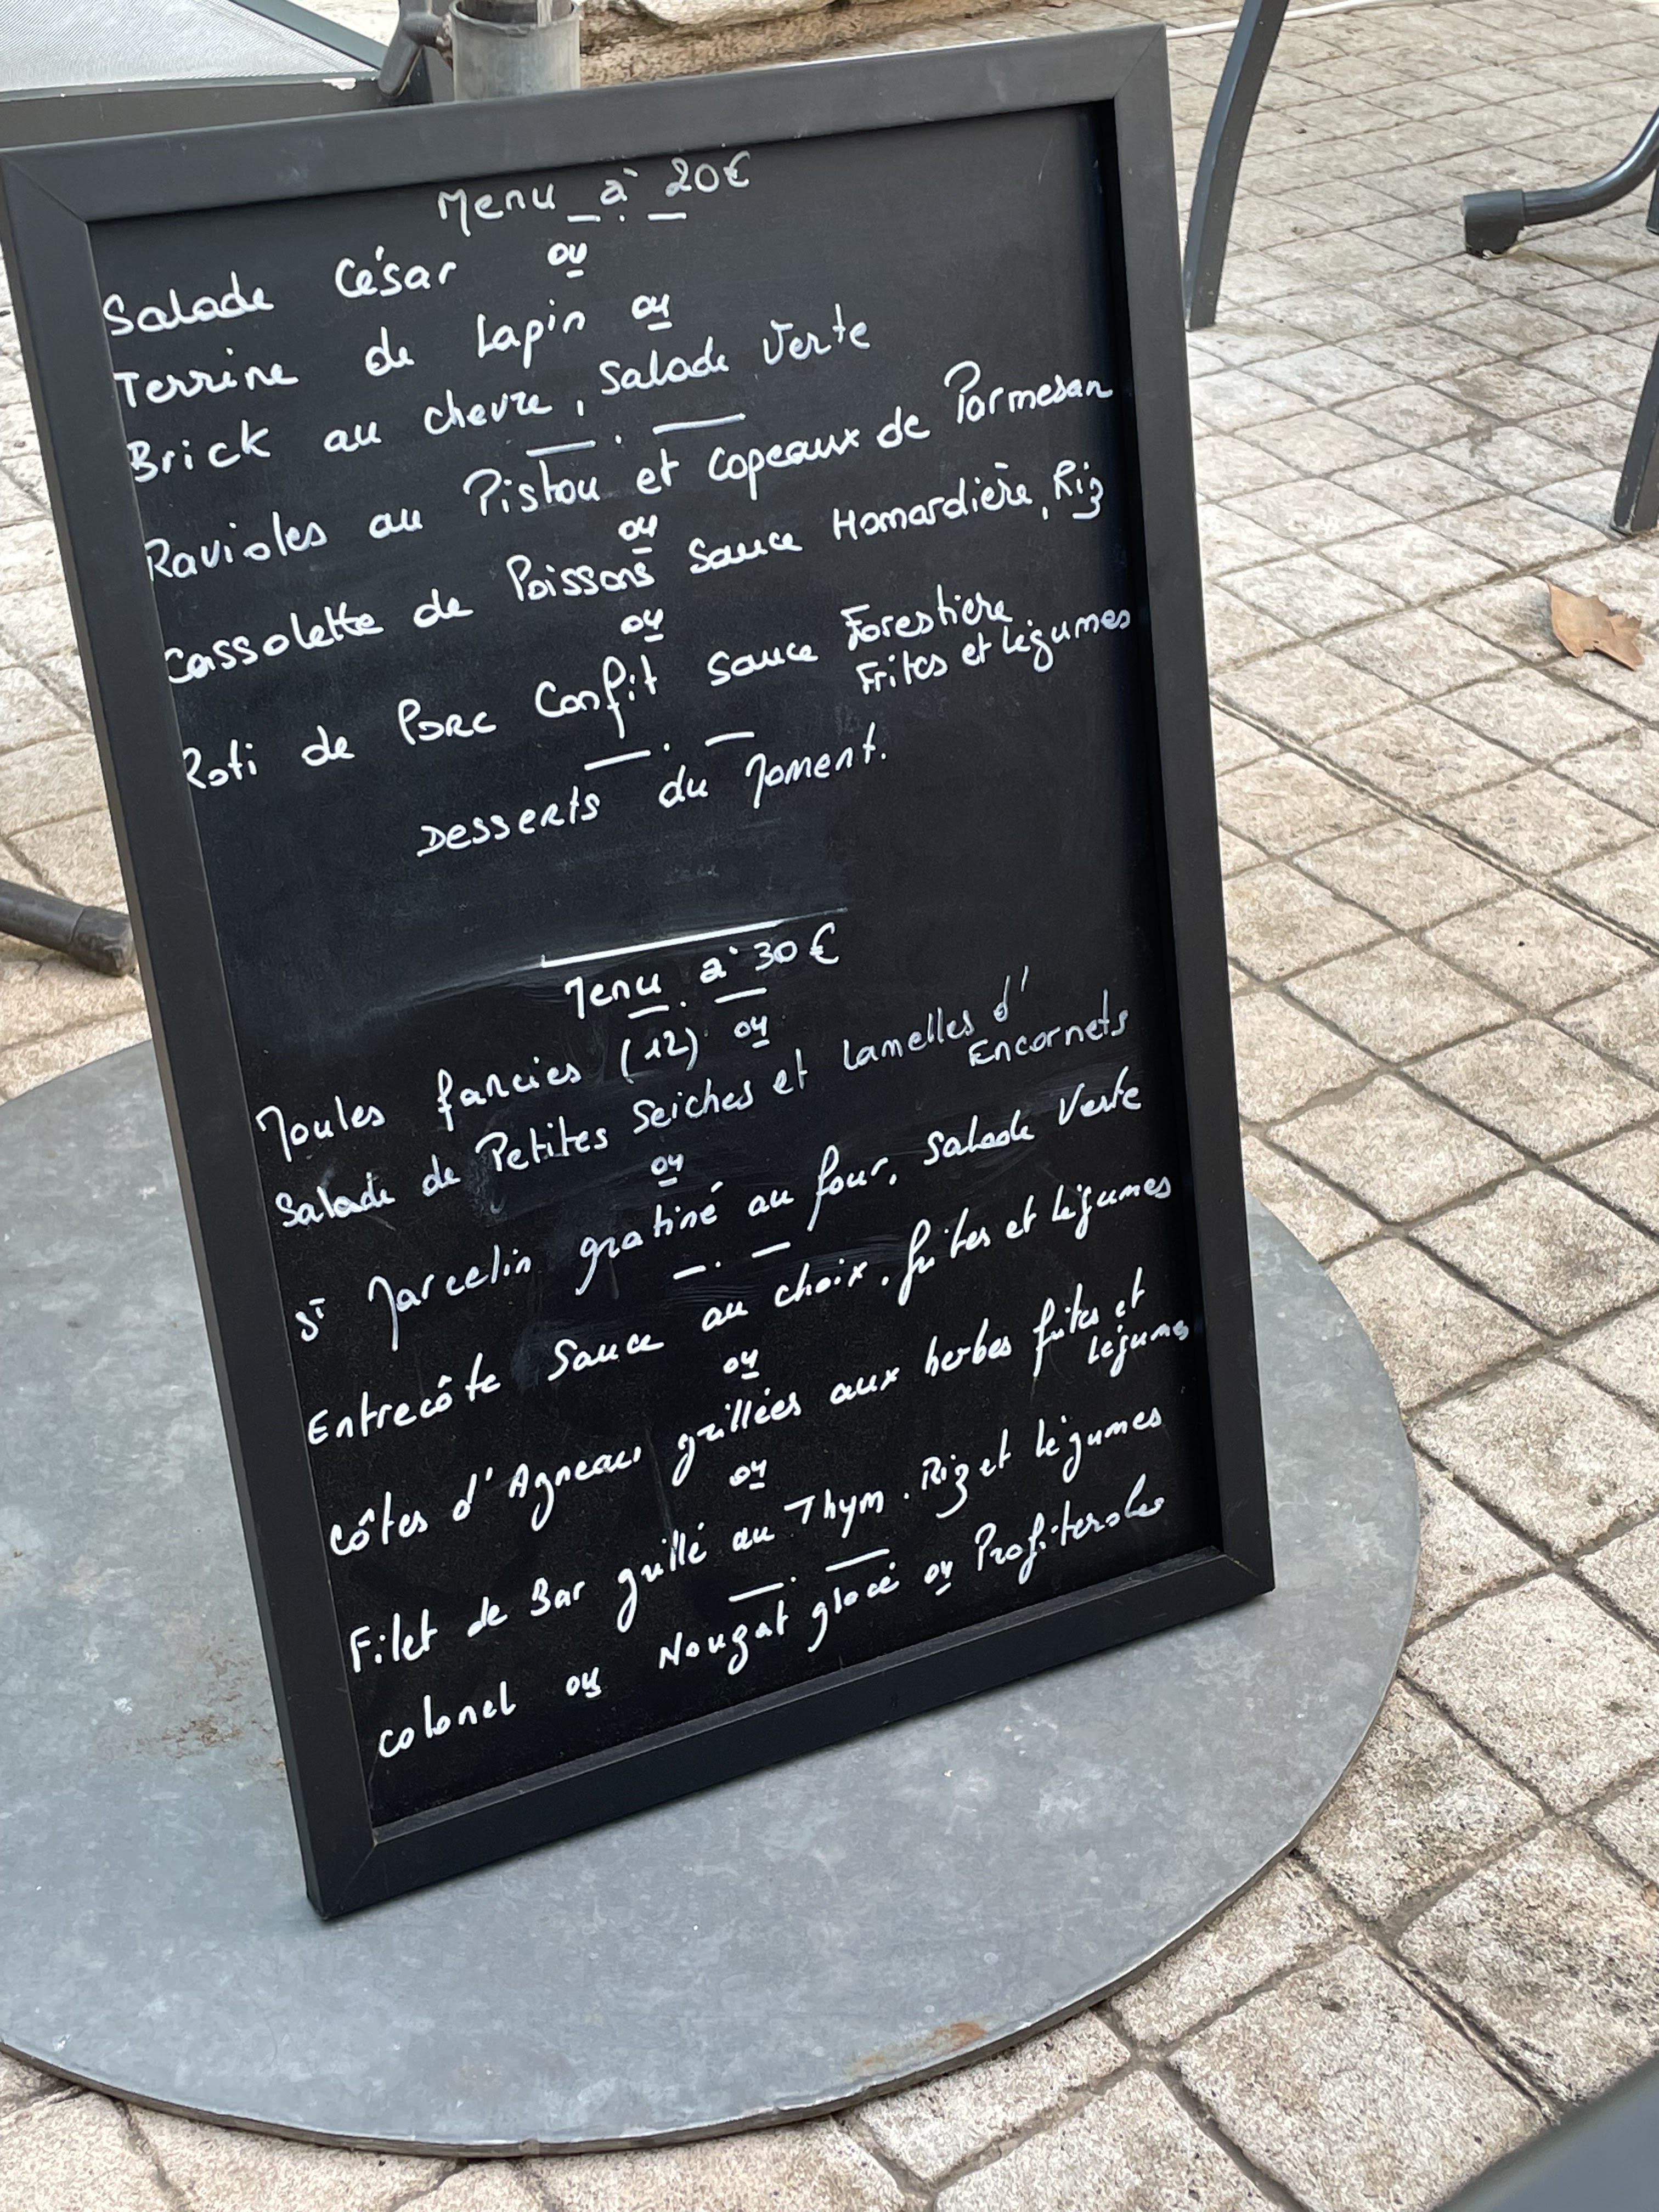 Menu à 20€
Salade César ou
Terrine de Lapin ou
Brick au chevre, Salade Verte
Ravioles au Pistou et Copeaux de Parmesan
ou
Cassolette de Poissons Sauce Homardière, Riz
ou
Roti de Porc Confit Sauce Forestière
Frites et légumes
Desserts du Moment.
Menu à 30€
Moules farcies (12) ou
Salade de Petites Seiches et Lamelles d'
Encornets
ou
St Marcelin gratiné au four, Salade Verte
Entrecôte Sauce au choix. frites et légumes
ou
Côtes d'Agneau grillées aux herbes frites et
légumes
ou
Filet de Bar grillé au Thym. Riz et légumes
Colonel ou Nougat glacé ou Profiteroles